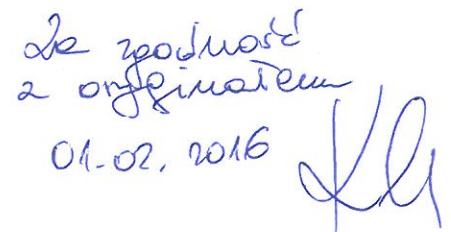 Za zgodność
z oryginałem
01.02.2016